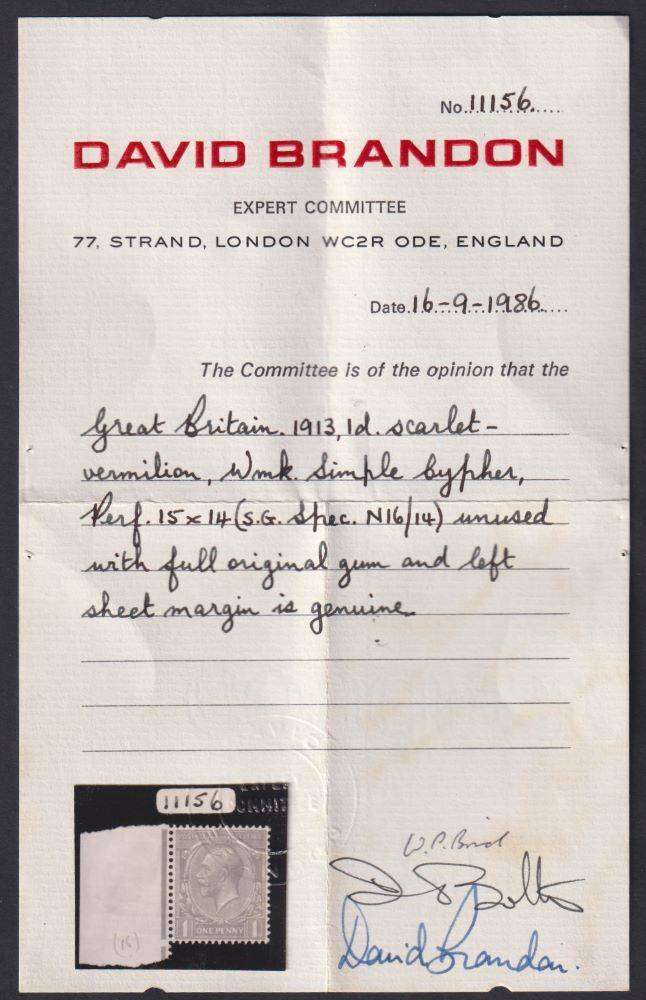 No. 11156.
DAVID BRANDON
EXPERT COMMITTEE
77, STRAND, LONDON WC2R ODE, ENGLAND
Date. 16-9-1986.
The Committee is of the opinion that the
Great Britain. 1913, 1d. scarlet-
vermilion, Wmk. Simple Cypher,
Perf. 15 x 14 (S.G. Spec. N16/14) unused
with full original gum and left
sheet margin is genuine.
11156
(16)
1 ONE PENNY 1
David Brandon.